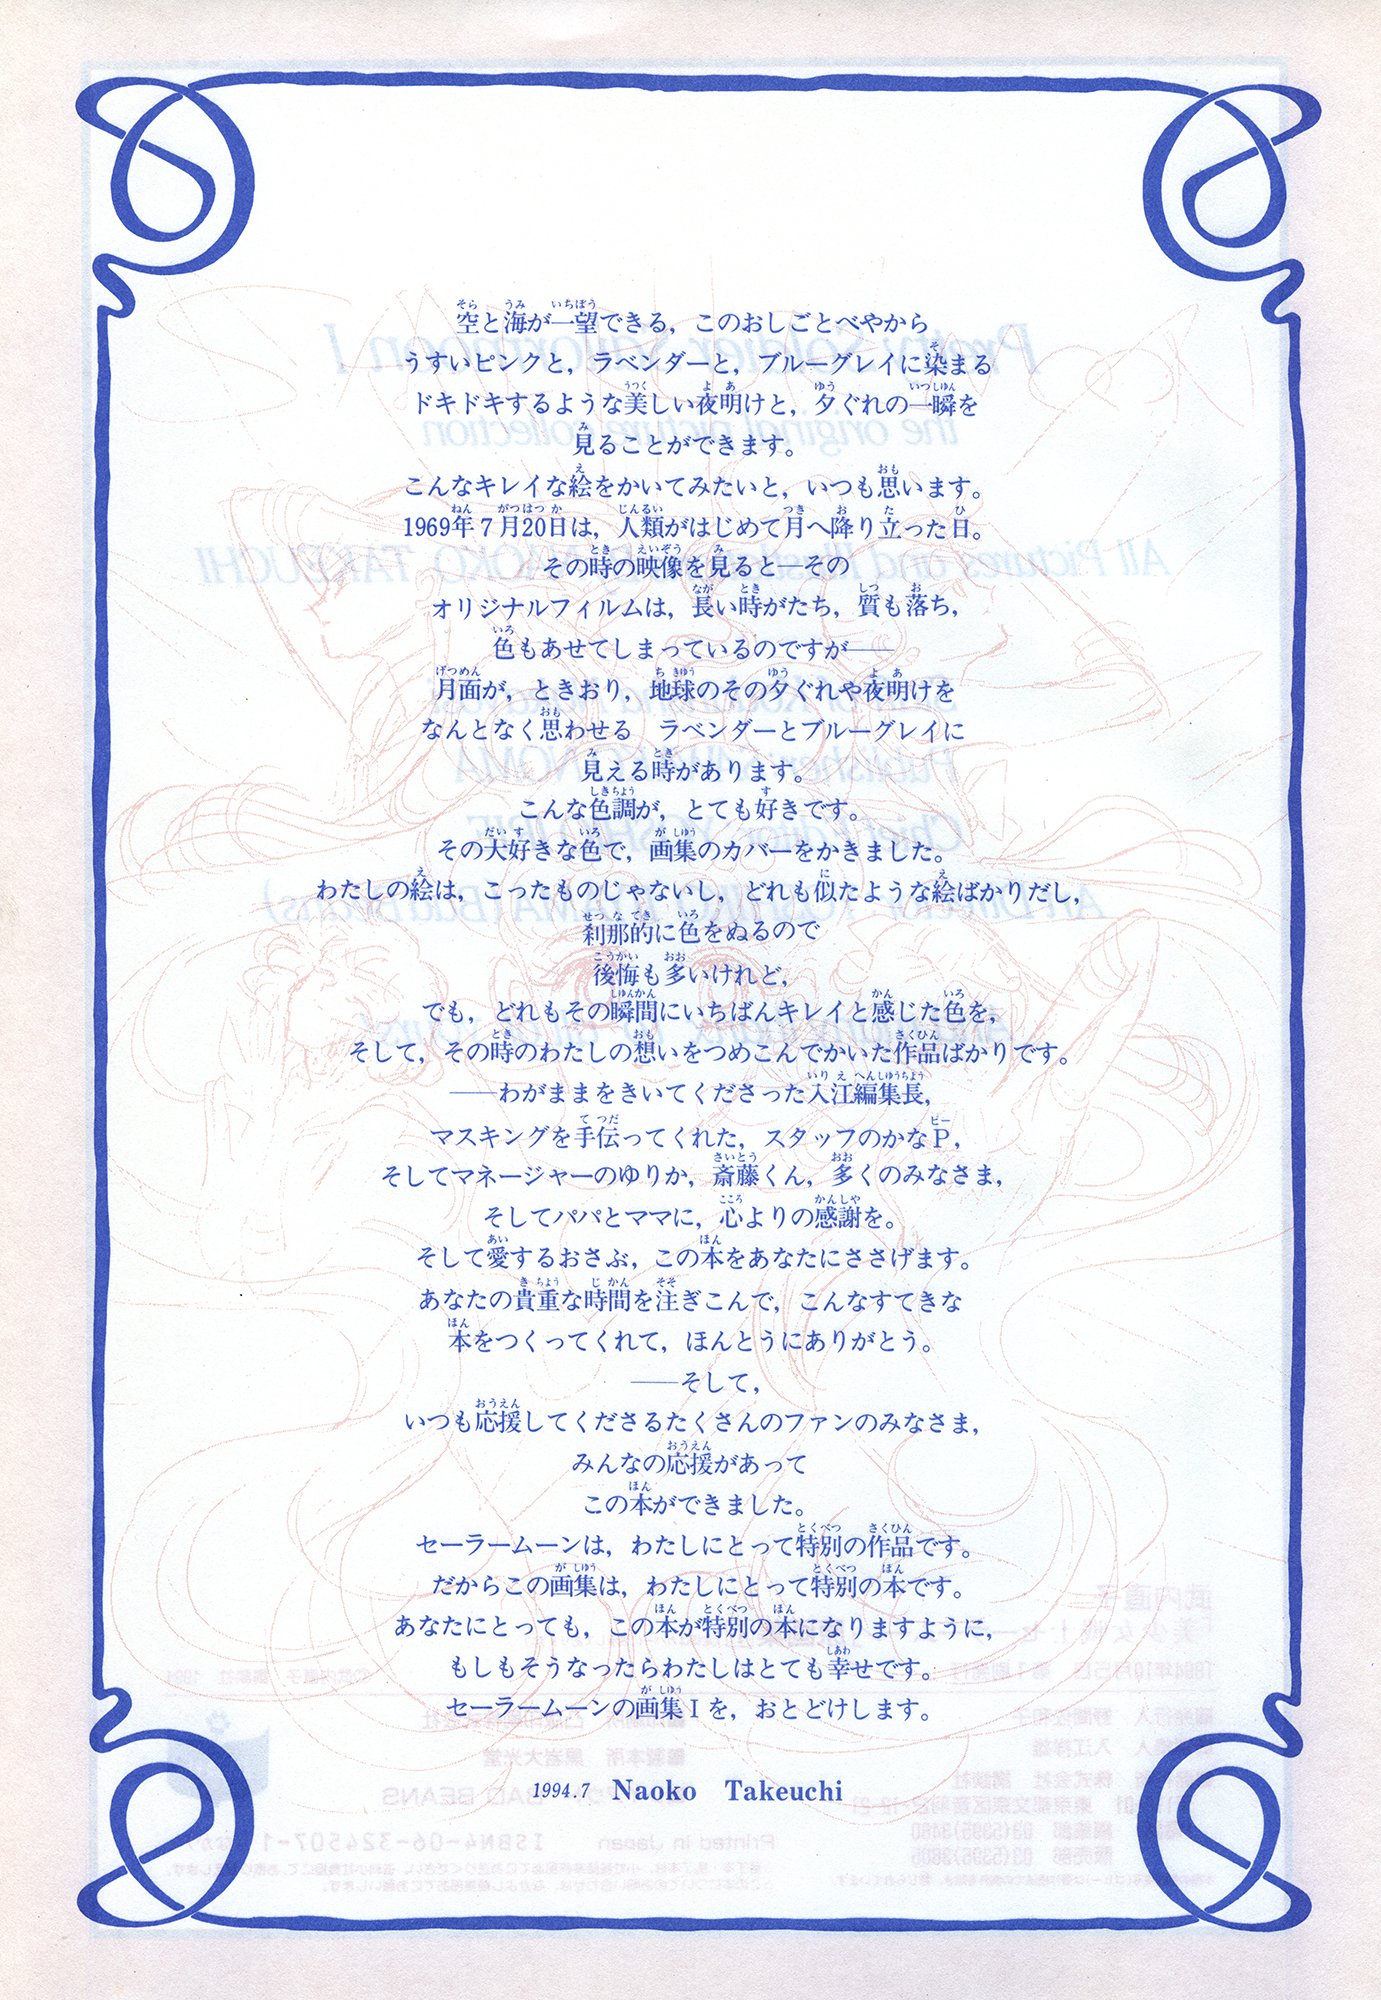 空と海が一望できる，このおしごとべやから
うすいピンクと，ラベンダーと，ブルーグレイに染まる
ドキドキするような美しい夜明けと，夕ぐれの一瞬を
見ることができます。
こんなキレイな絵をかいてみたいと，いつも思います。
1969年7月20日は，人類がはじめて月へ降り立った日。
その時の映像を見ると―その
オリジナルフィルムは，長い時がたち，質も落ち，
色もあせてしまっているのですが――
月面が，ときおり，地球のその夕ぐれや夜明けを
なんとなく思わせる　ラベンダーとブルーグレイに
見える時があります。
こんな色調が，とても好きです。
その大好きな色で，画集のカバーをかきました。
わたしの絵は，こったものじゃないし，どれも似たような絵ばかりだし，
刹那的に色をぬるので
後悔も多いけれど，
でも，どれもその瞬間にいちばんキレイと感じた色を，
そして，その時のわたしの想いをつめこんでかいた作品ばかりです。
――わがままをきいてくださった入江編集長，
マスキングを手伝ってくれた，スタッフのかなP，
そしてマネージャーのゆりか，斎藤くん，多くのみなさま，
そしてパパとママに，心よりの感謝を。
そして愛するおさぶ，この本をあなたにささげます。
あなたの貴重な時間を注ぎこんで，こんなすてきな
本をつくってくれて，ほんとうにありがとう。
――そして，
いつも応援してくださるたくさんのファンのみなさま，
みんなの応援があって
この本ができました。
セーラームーンは，わたしにとって特別の作品です。
だからこの画集は，わたしにとって特別の本です。
あなたにとっても，この本が特別の本になりますように，
もしもそうなったらわたしはとても幸せです。
セーラームーンの画集Ⅰを，おとどけします。
1994.7　Naoko　Takeuchi